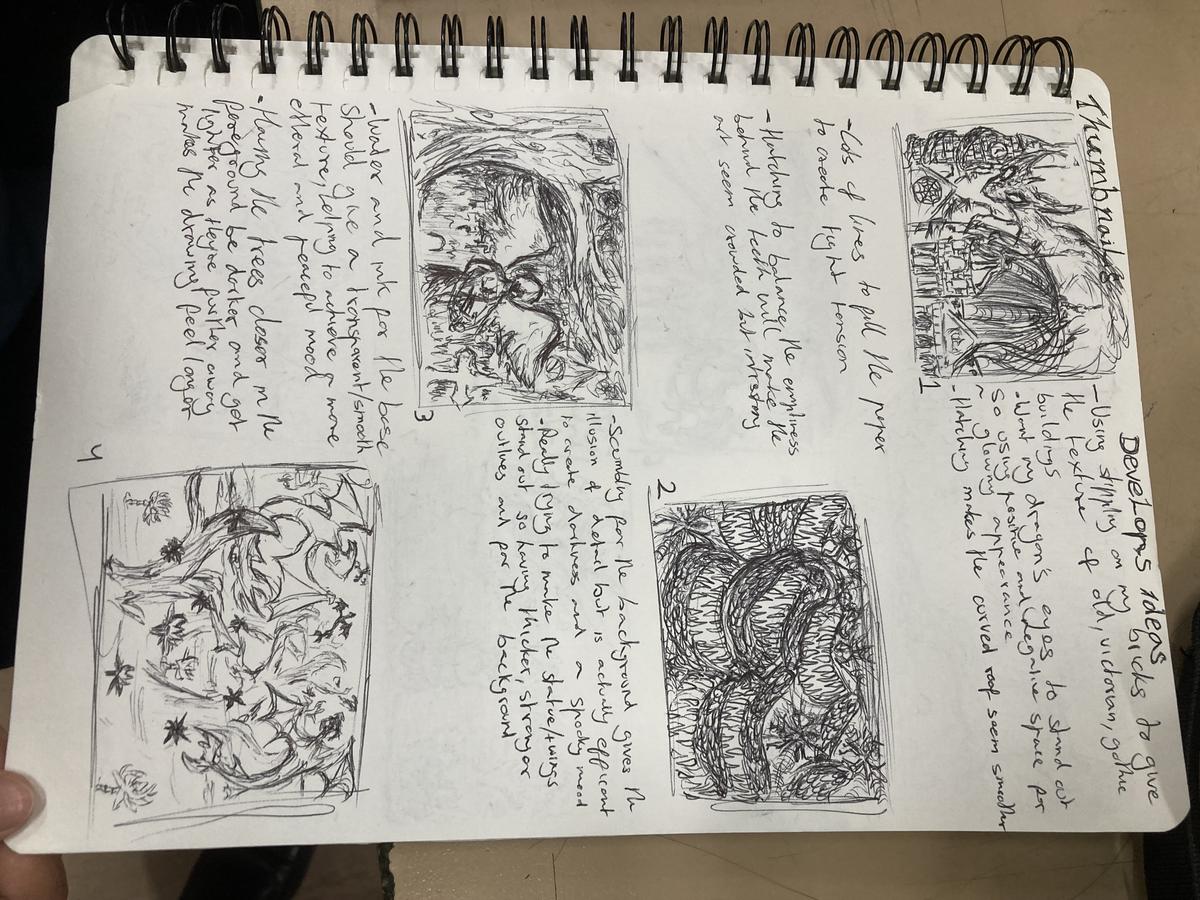 Thumbnails
Develops ideas
-Using stippling on my bricks to give
the texture of old, victorian, gothic
buildings
-Want my dragon's eyes to stand out
so using positive and negative space for
a glowing appearance
-Hatching makes the curved roof seem smoother
1
-Lots of lines to fill the paper
to create tight tension
-Hatching to balance the emptiness
behind the teeth will make the
art seem crowded but intresting
2
-Scumbling for the background gives the
illusion of detail but is actually efficient
to create darkness and a spooky mood
-Really trying to make the statue/wings
stand out so having thicker, stronger
outlines and for the background
3
-Water and ink for the base
should give a transparent/smooth
texture, helping to achieve a more
etheral and peacefl mood
-Having the trees closer in the
foreground be darker and get
lighter as theyre further away
makes the drawing feel longer
4